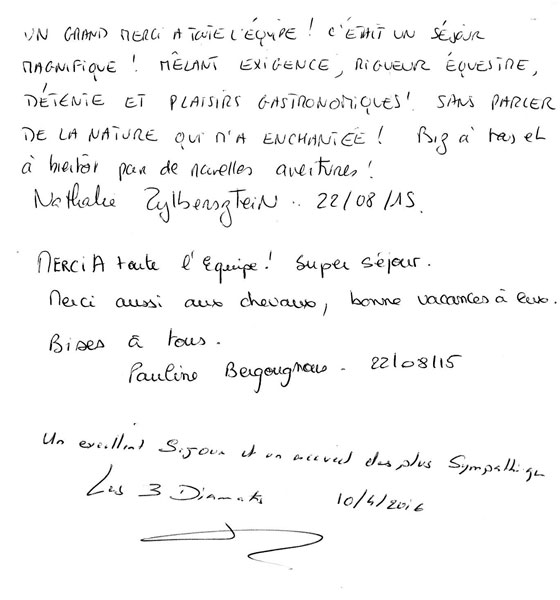 UN GRAND MERCI A TOUTE L'ÉQUIPE ! C'ÉTAIT UN SÉJOUR
MAGNIFIQUE ! MÊLANT EXIGENCE, RIGUEUR ÉQUESTRE,
DÉTENTE ET PLAISIRS GASTRONOMIQUES ! SANS PARLER
DE LA NATURE QUI M'A ENCHANTÉE ! Biz à tous et
à bientôt pour de nouvelles aventures !
Nathalie Zylbersztein . 22/08/15.
MERCI A toute l'équipe ! Super séjour.
Merci aussi aux chevaux, bonne vacances à eux.
Bises à tous.
Pauline Bergougnoux . 22/08/15
Un excellent Séjour et un accueil des plus Sympathique
Les 3 Diamants 10/4/2016